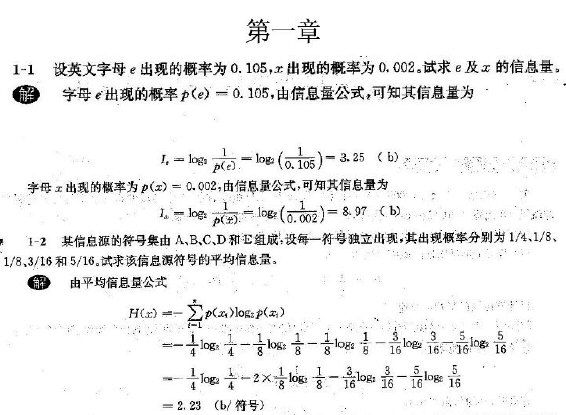 第一章
1-1 设英文字母 e 出现的概率为 0.105,x 出现的概率为 0.002。试求 e 及 x 的信息量。
解 字母 e 出现的概率 p(e) = 0.105,由信息量公式,可知其信息量为
Iₑ = log₂ 1/p(e) = log₂ (1/0.105) = 3.25 (b)
字母 x 出现的概率为 p(x) = 0.002,由信息量公式,可知其信息量为
Iₑ = log₂ 1/p(x) = log₂ (1/0.002) = 8.97 (b)
1-2 某信息源的符号集由 A、B、C、D 和 E 组成,设每一符号独立出现,其出现概率分别为 1/4、1/8、
1/8、3/16 和 5/16。试求该信息源符号的平均信息量。
解 由平均信息量公式
H(x) = - ∑ p(xᵢ)log₂ p(xᵢ)
= - 1/4 log₂ 1/4 - 1/8 log₂ 1/8 - 1/8 log₂ 1/8 - 3/16 log₂ 3/16 - 5/16 log₂ 5/16
= - 1/4 log₂ 1/4 - 2 × 1/8 log₂ 1/8 - 3/16 log₂ 3/16 - 5/16 log₂ 5/16
= 2.23 (b/符号)